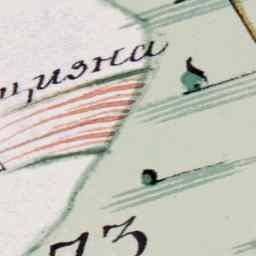 щизна
73